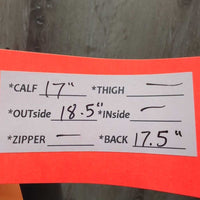 *CALF 17" *THIGH —
*OUTside 18.5" *INside —
*ZIPPER — *BACK 17.5"